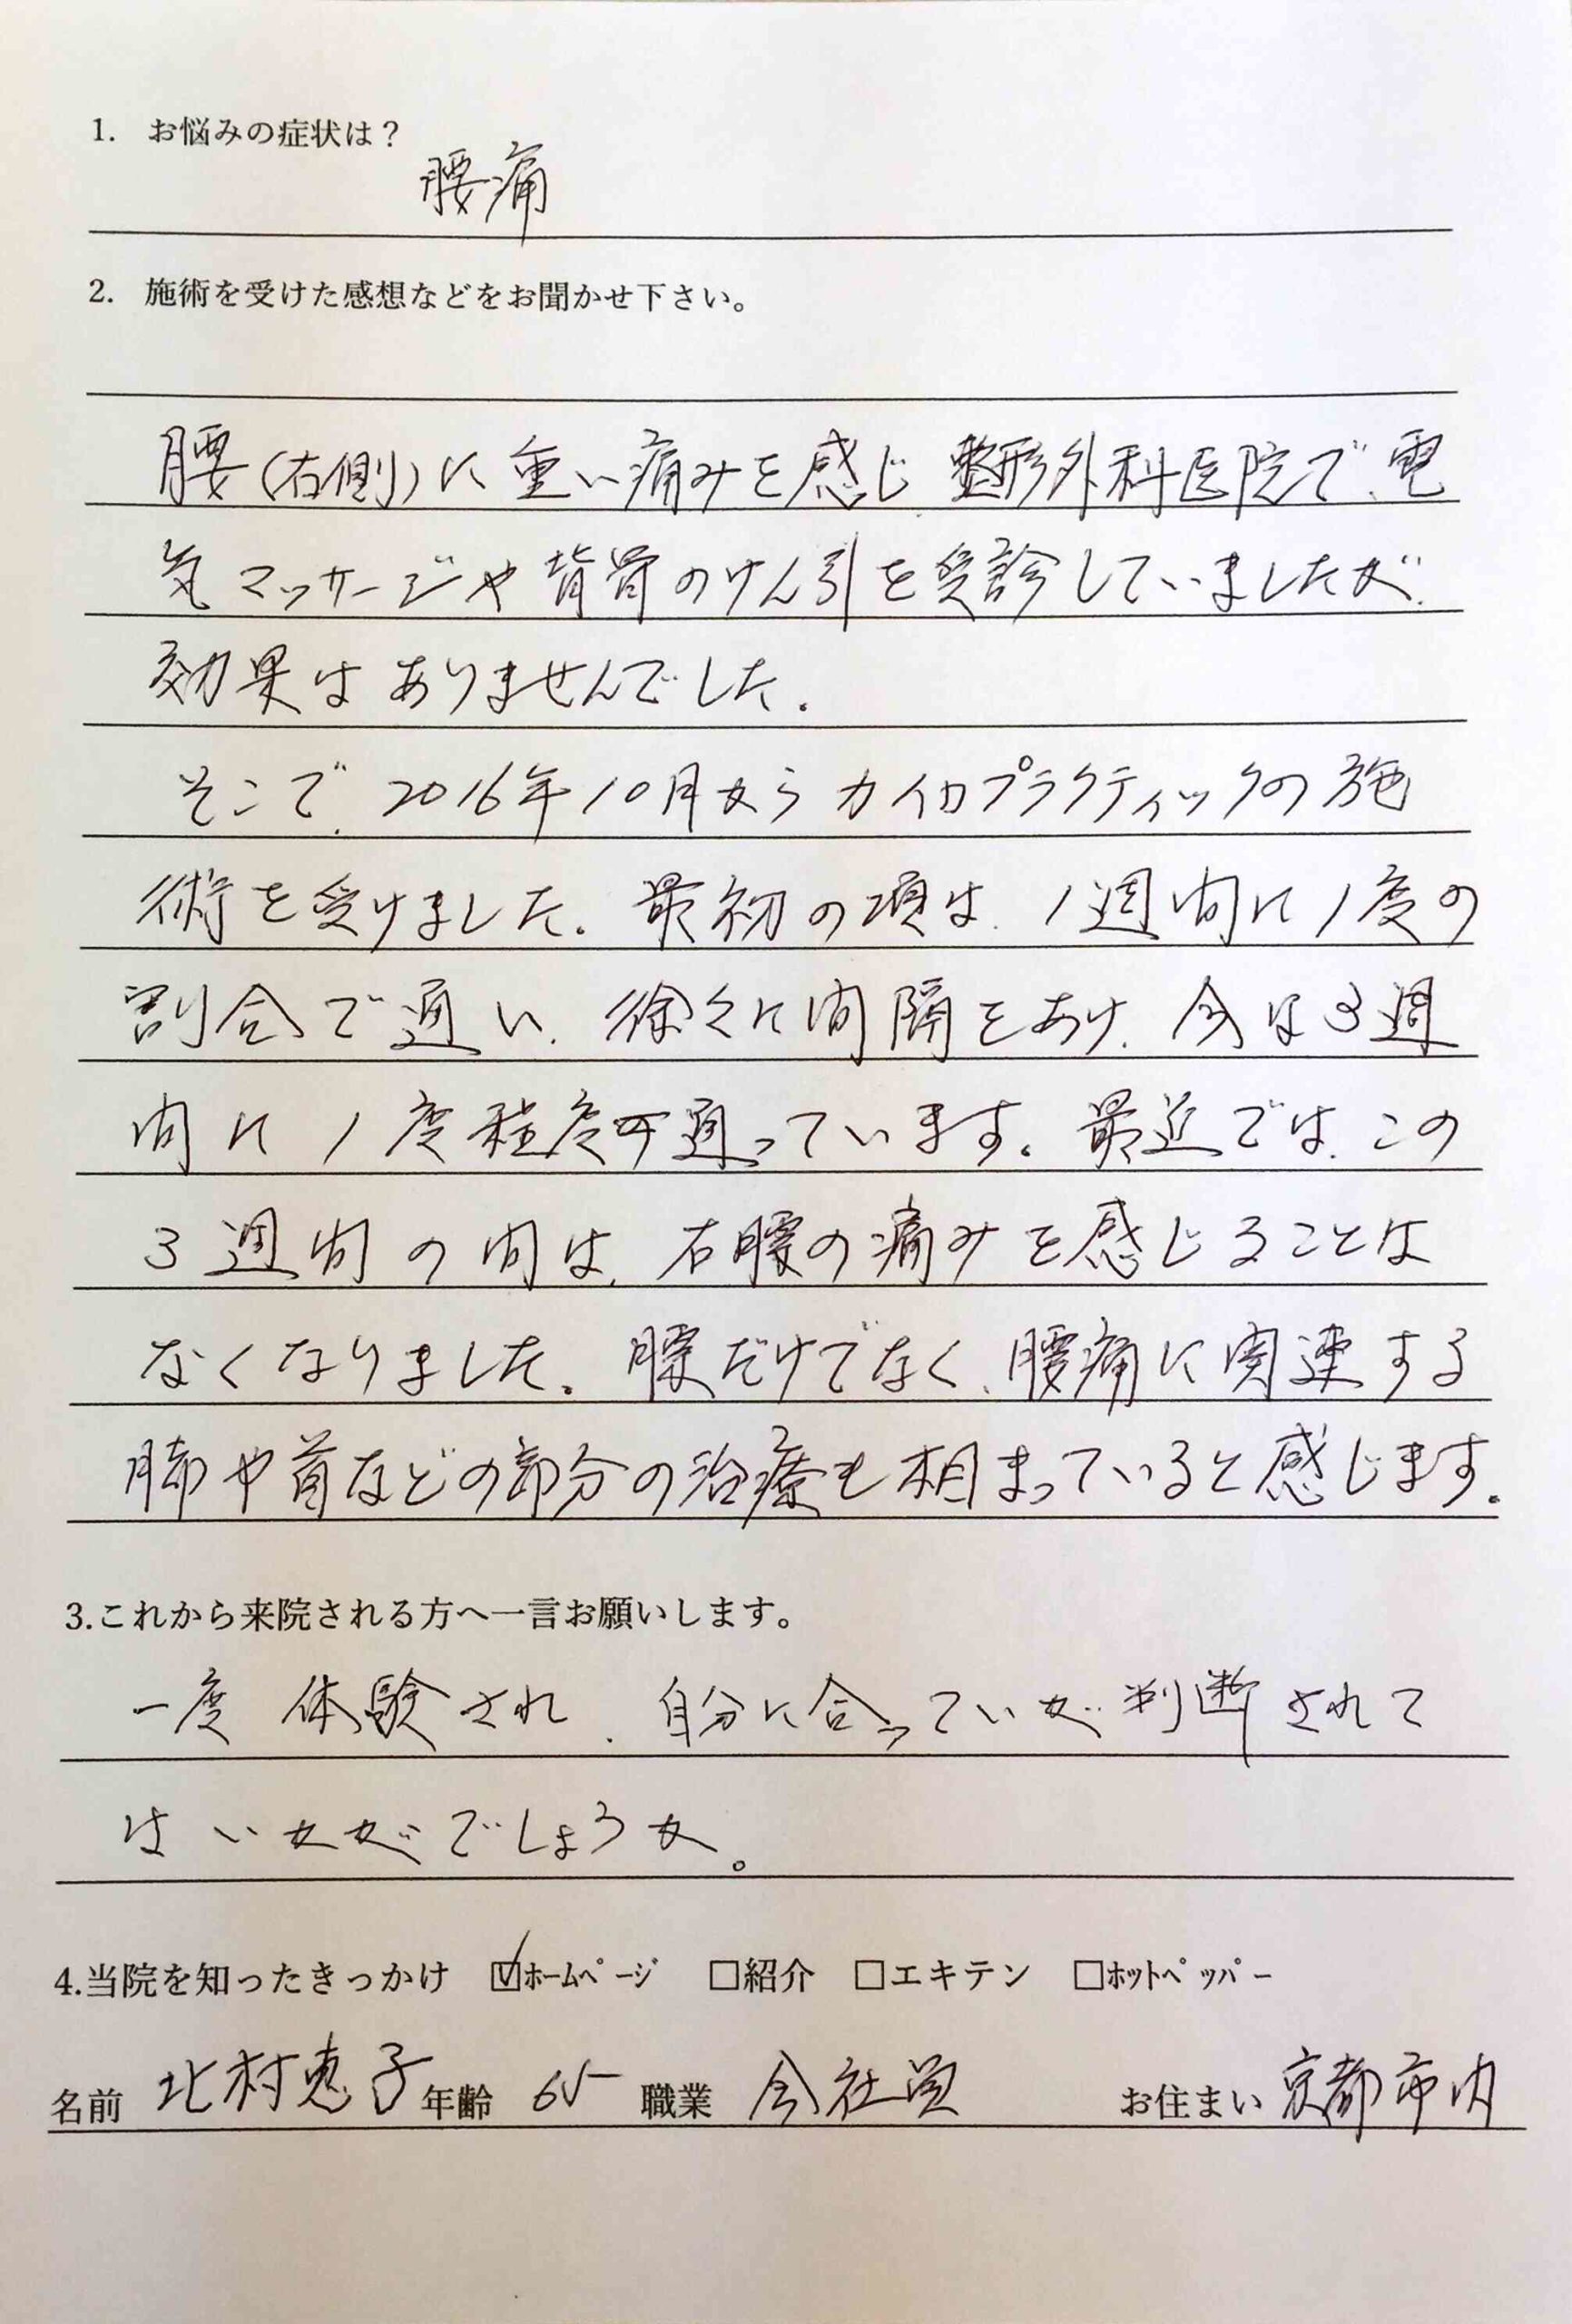 1. お悩みの症状は？
腰痛
2. 施術を受けた感想などをお聞かせ下さい。
腰(右側)に重い痛みを感じ、整形外科医院で、電
気マッサージや背骨のけん引を受診していましたが、
効果はありませんでした。
そこで、2016年10月からカイロプラクティックの施
術を受けました。最初の頃は、1週間に1度の
割合で通い、徐々に間隔をあけ、今は3週
間に1度程度通っています。最近では、この
3週間の間は、右腰の痛みを感じることは
なくなりました。腰だけでなく、腰痛に関連する
脚や首などの部分の治療も相まっていると感じます。
3.これから来院される方へ一言お願いします。
一度 体験され、自分に合っていか判断されて
はいかがでしょうか。
4.当院を知ったきっかけ ☑ホームページ □紹介 □エキテン □ホットペッパー
名前 北村恵子 年齢 65 職業 会社員 お住まい 京都市内